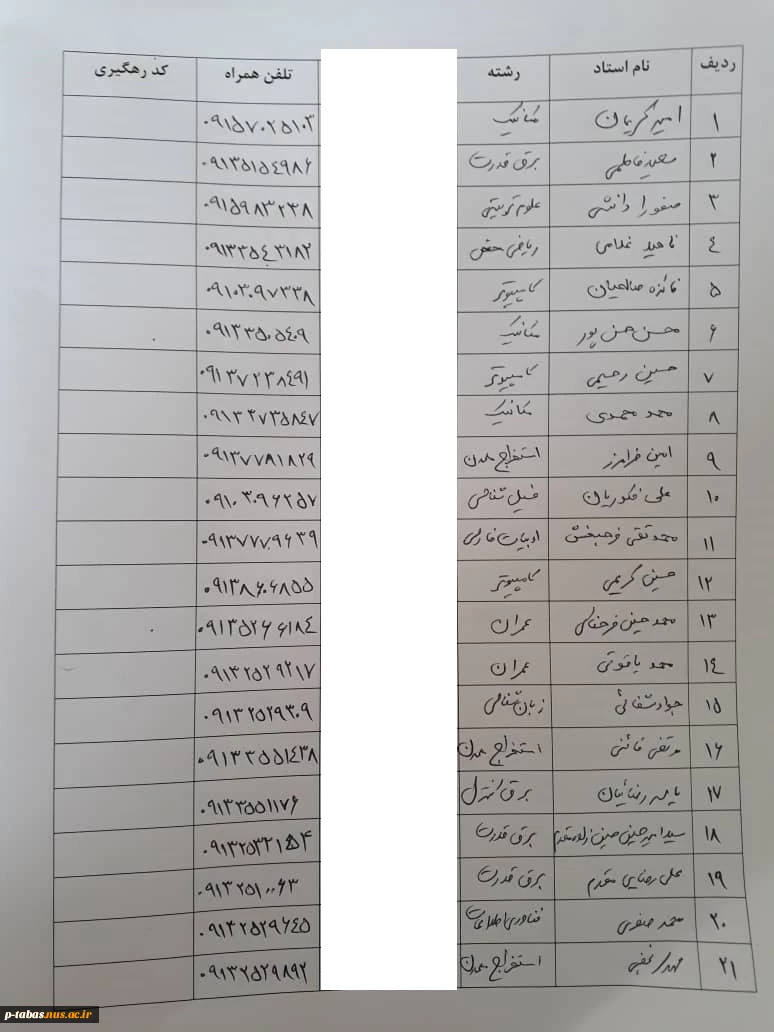 ردیف نام استاد رشته تلفن همراه کد رهگیری
۱ امیر کریمان مکانیک ۰۹۱۵۷۰۲۵۱۰۳
۲ سعید فاطمی برق قدرت ۰۹۱۳۵۱۵۴۹۸۶
۳ صفورا دانشی علوم تربیتی ۰۹۱۵۹۸۳۲۳۸
۴ ناهید غلامی ریاضی محض ۰۹۱۳۳۵۴۳۱۸۲
۵ فائزه صالحیان کامپیوتر ۰۹۱۰۳۰۹۷۳۳۸
۶ محسن حسن پور مکانیک ۰۹۱۳۳۵۰۵۴۰۹
۷ حسین رحیمی کامپیوتر ۰۹۱۳۷۲۳۸۴۹۱
۸ محمد محمدی مکانیک ۰۹۱۳۲۷۳۵۸۴۷
۹ امین فرامرز استخراج معدن ۰۹۱۳۷۷۸۱۸۲۹
۱۰ علی فکوریان فسیل شناسی ۰۹۱۰۳۰۹۶۲۵۷
۱۱ محمدتقی فرحبخش ادبیات فارسی ۰۹۱۳۷۷۷۰۹۶۳۹
۱۲ حسین کریمی کامپیوتر ۰۹۱۳۸۶۰۶۸۵۵
۱۳ محمدحسین فرحناکی عمران ۰۹۱۳۵۲۶۶۱۸۴
۱۴ محمد یاقوتی عمران ۰۹۱۳۲۵۲۹۲۱۷
۱۵ جواد شفائی زبان شناسی ۰۹۱۳۲۵۲۹۳۰۹
۱۶ مرتضی قائنی استخراج معدن ۰۹۱۳۳۵۵۱۴۳۸
۱۷ یاسر رضائیان برق کنترل ۰۹۱۳۳۵۵۱۱۷۶
۱۸ سید امیرحسین برق قدرت ۰۹۱۳۲۵۳۲۱۵۴
۱۹ علی رضایی مقدم برق قدرت ۰۹۱۳۲۵۱۰۰۶۳
۲۰ محمد صفری فناوری اطلاعات ۰۹۱۳۲۵۲۹۶۴۵
۲۱ مهدی نجفی استخراج معدن ۰۹۱۳۲۵۲۹۸۹۲
p-tabas.nus.ac.ir